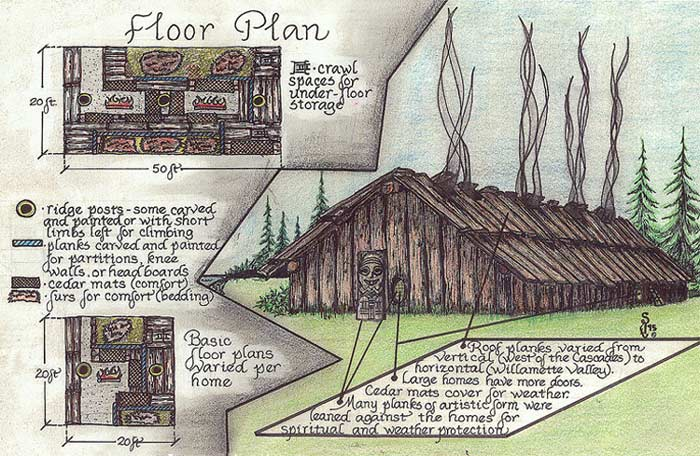 Floor Plan
20ft
50ft
- crawl
spaces for
under-floor
storage
· ridge posts - some carved
and painted or with short
limbs left for climbing
· planks carved and painted
for partitions, knee
walls, or head boards
· cedar mats (comfort)
· furs for comfort (bedding)
20ft
20ft
Basic
floor plans
varied per
home
Roof planks varied from
vertical (West of the Cascades) to
horizontal (Willamette Valley).
Large homes have more doors.
Cedar mats cover for weather.
Many planks of artistic form were
leaned against the homes for
spiritual and weather protection